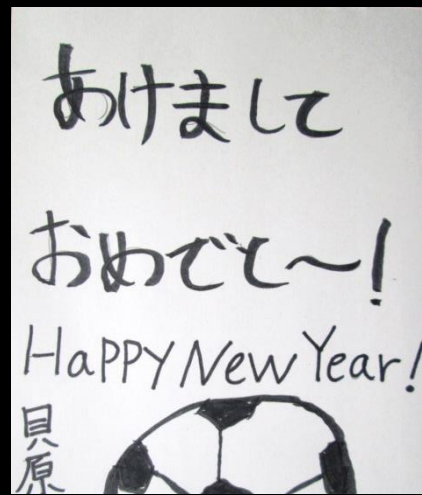 あけまして
おめでと〜!
HaPPY New Year!
貝原